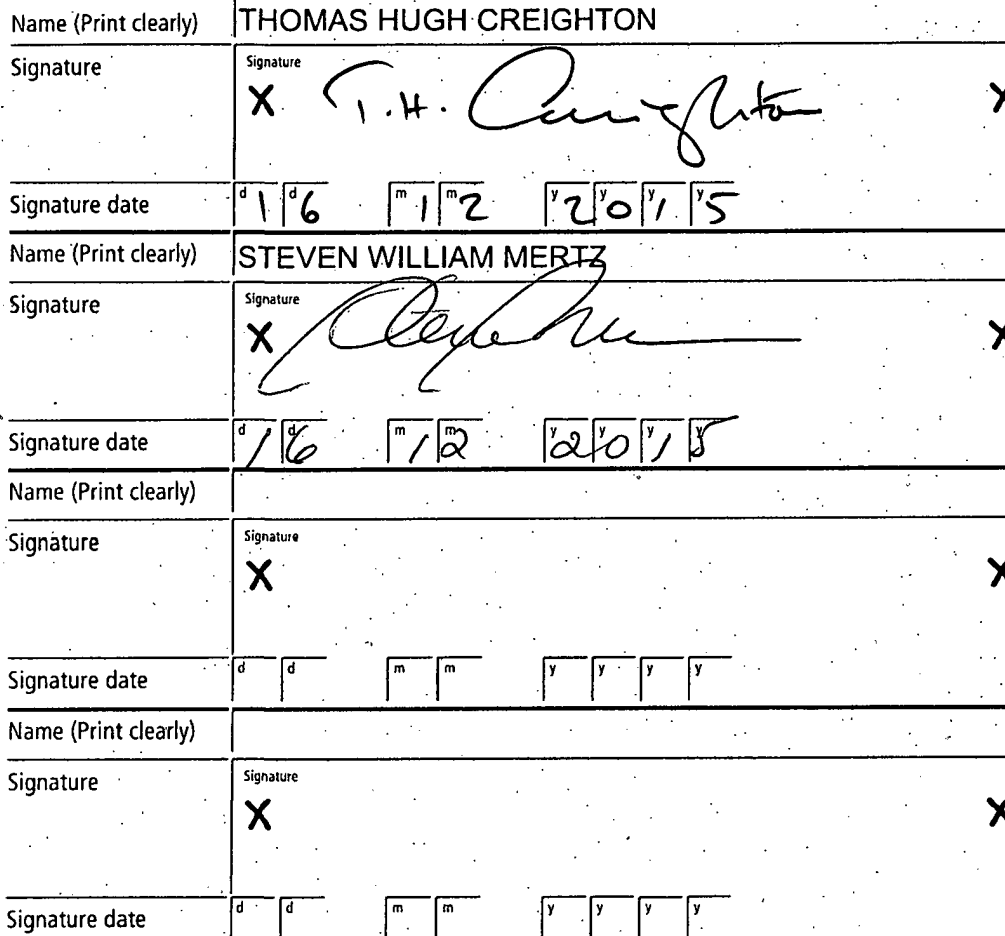 Name (Print clearly) THOMAS HUGH CREIGHTON
Signature Signature
X T.H. Creighton X
Signature date d1 d6 m1 m2 y2 y0 y1 y5
Name (Print clearly) STEVEN WILLIAM MERTZ
Signature Signature
X X
Signature date d1 d6 m1 m2 y2 y0 y1 y5
Name (Print clearly)
Signature Signature
X X
Signature date d d m m y y y y
Name (Print clearly)
Signature Signature
X X
Signature date d d m m y y y y